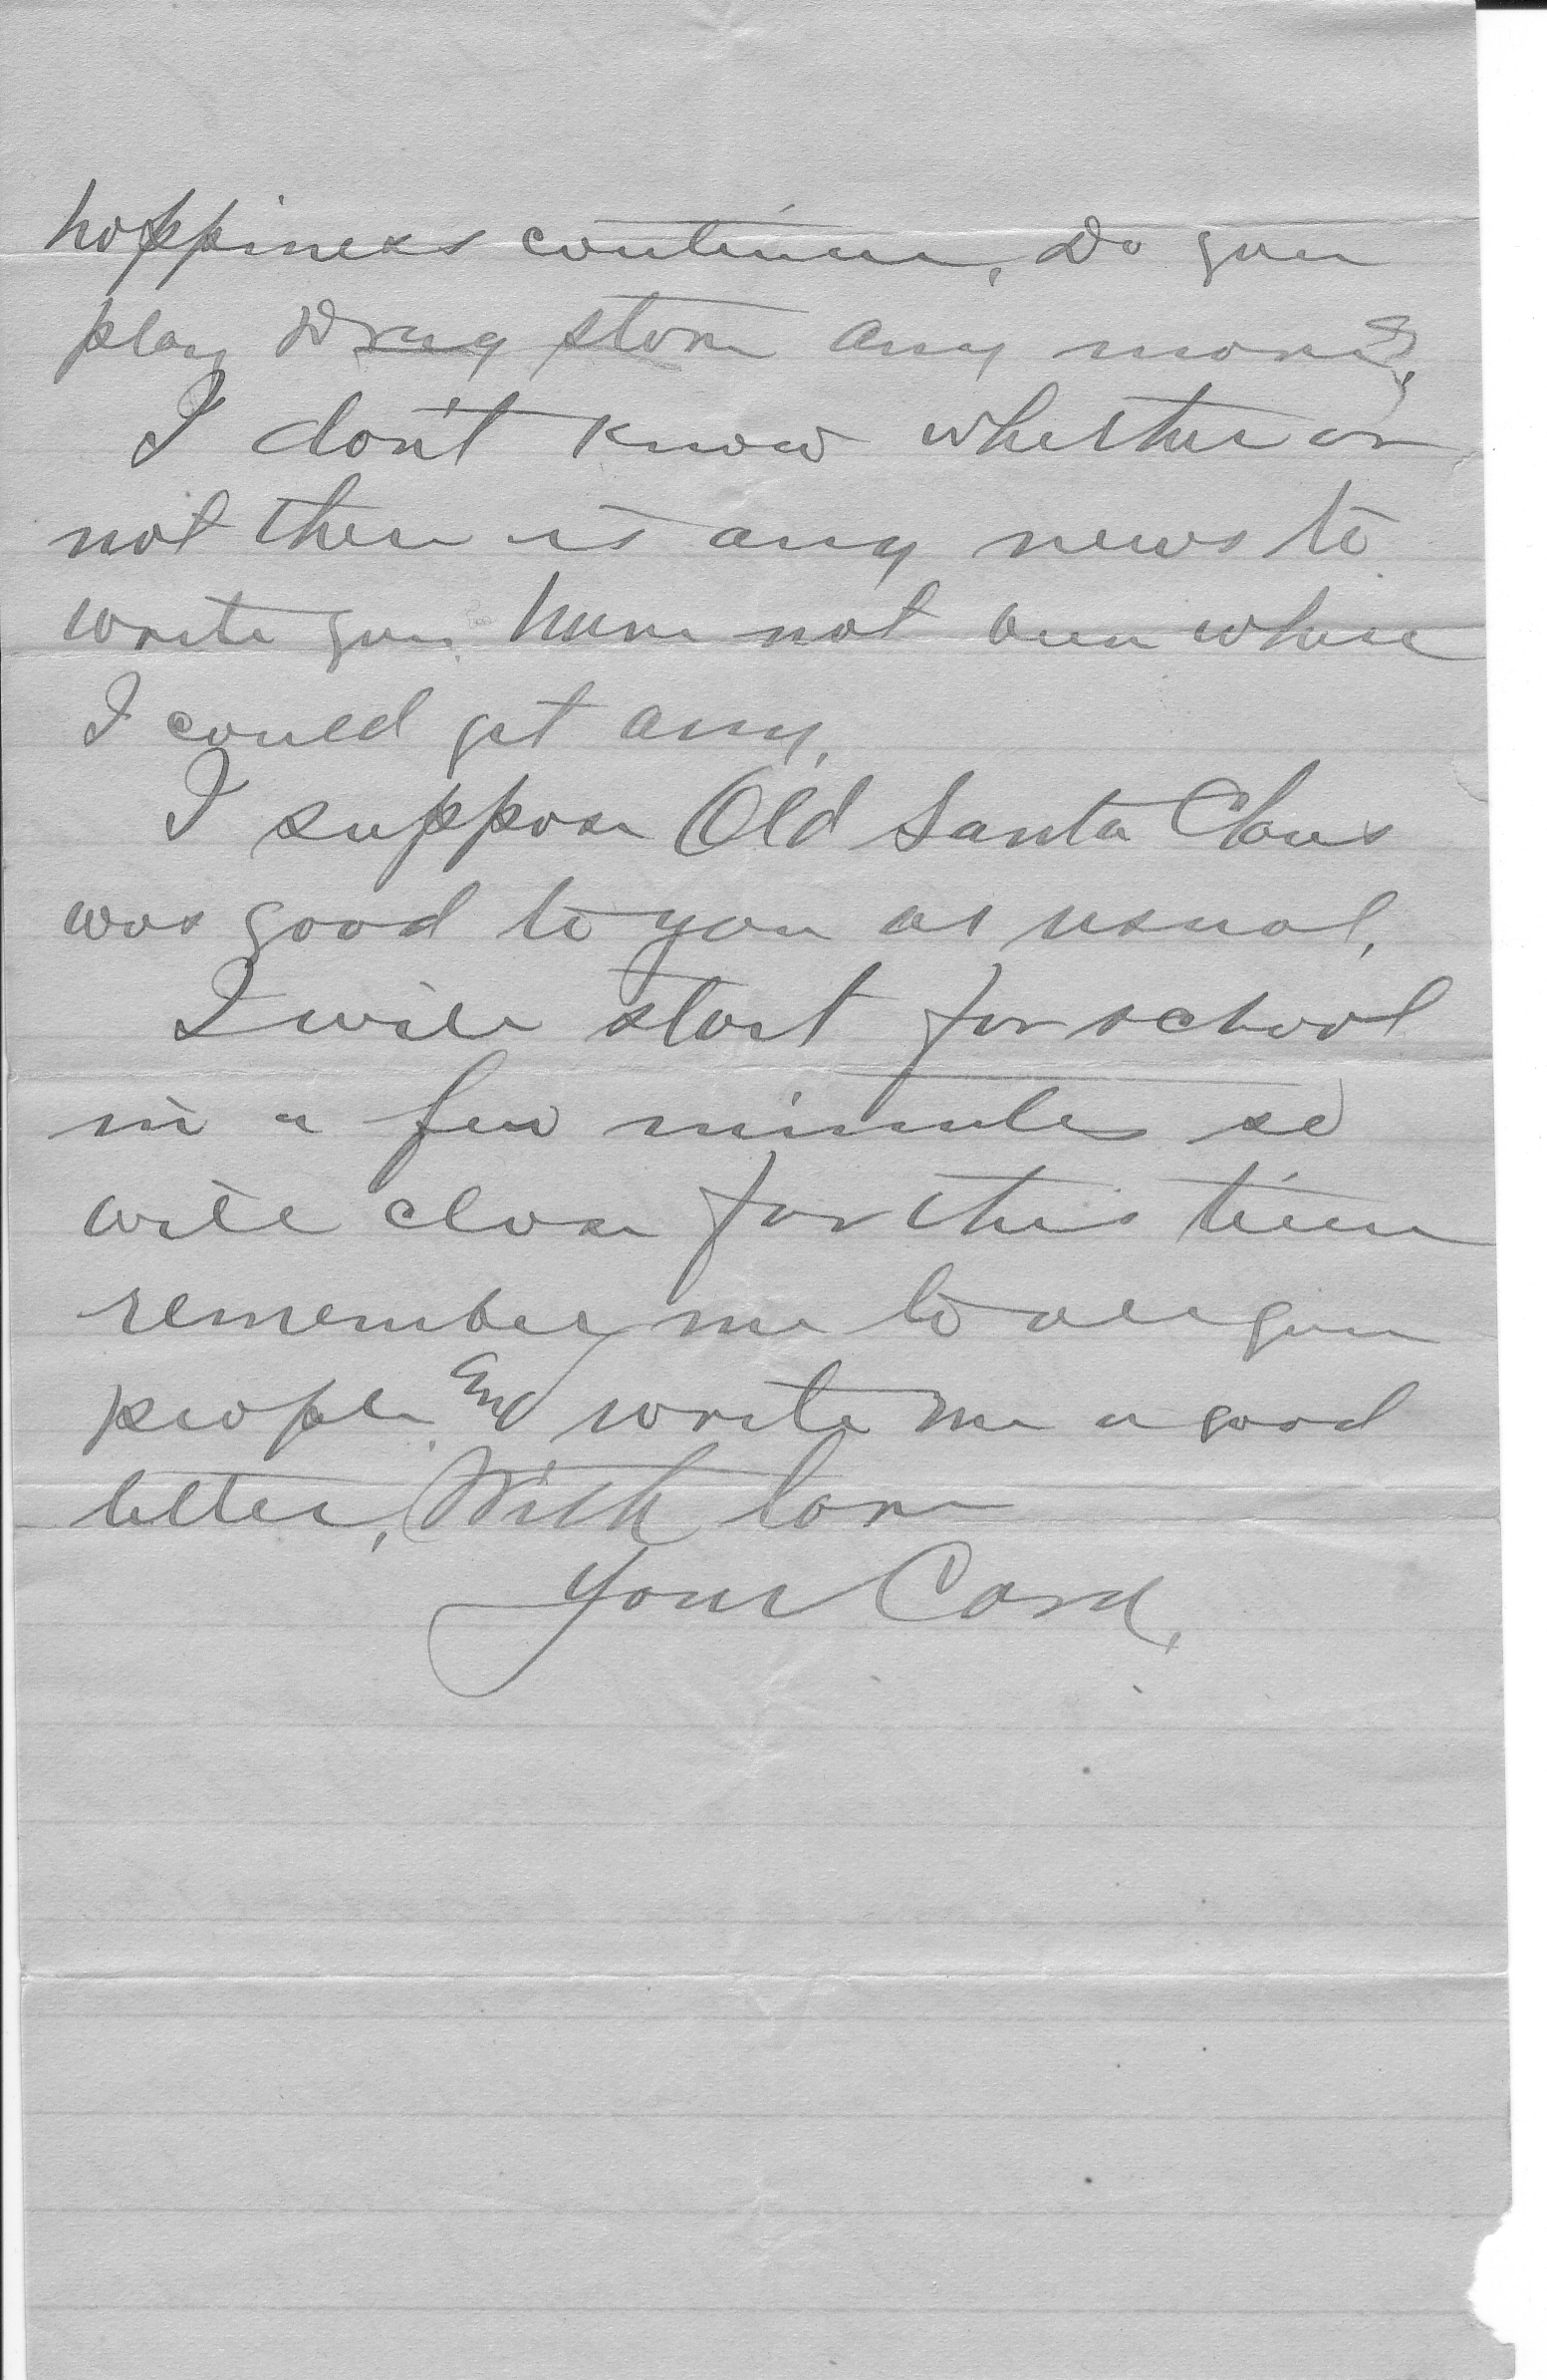 happiness continue. Do you
play Drug store any more?
I don't know whether or
not there is any news to
write you. Have not been where
I could get any.
I suppose Old Santa Claus
was good to you as usual.
I will start for school
in a few minutes so
will close for this time
remember me to all your
people and write me a good
letter, With love
Your